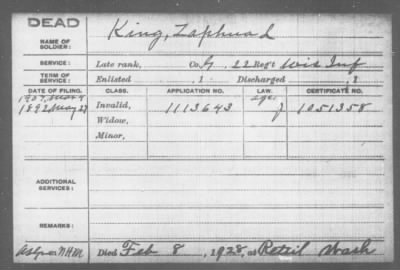 DEAD
NAME OF SOLDIER: King, Zaphna L
SERVICE: Late rank, Co. G, 22 Reg't Wis Inf
TERM OF SERVICE: Enlisted , 1 Discharged , 1
DATE OF FILING. CLASS. APPLICATION NO. LAW. CERTIFICATE NO.
1907, Mar 9 age.
1892 May 27 Invalid, 1113643 J 1051358
Widow,
Minor,
ADDITIONAL SERVICES:
REMARKS:
Died Feb 8, 1928, at Wash